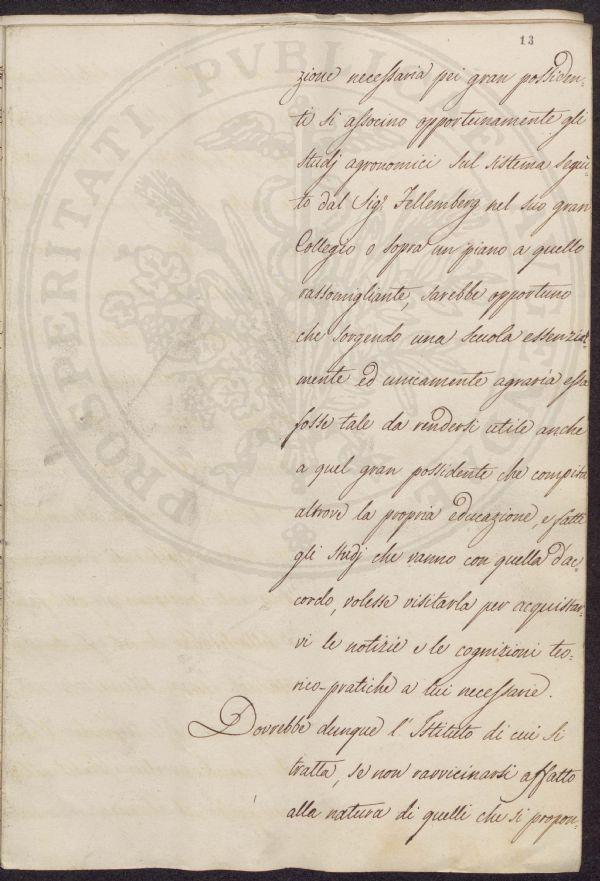 13
zione necessaria pei gran possiden-
ti si associno opportunamente gli
studj agronomici sul sistema segui-
to dal Sig.r Fellemberg nel suo gran
Collegio o sopra un piano a quello
rassomigliante, sarebbe opportuno
che sorgendo una scuola essenzial
mente ed unicamente agraria essa
fosse tale da rendersi utile anche
a quel gran possidente che compita
altrove la propria educazione, e fatti
gli studj che vanno con quella d'ac-
cordo, volesse visitarla per acquistar-
vi le notizie e le cognizioni teo-
rico-pratiche a lui necessarie.
Dovrebbe dunque l'Istituto di cui si
tratta, se non ravvicinarsi affatto
alla natura di quelli che si propon-
PROSPERITATI PVBLICAE AVGENDAE